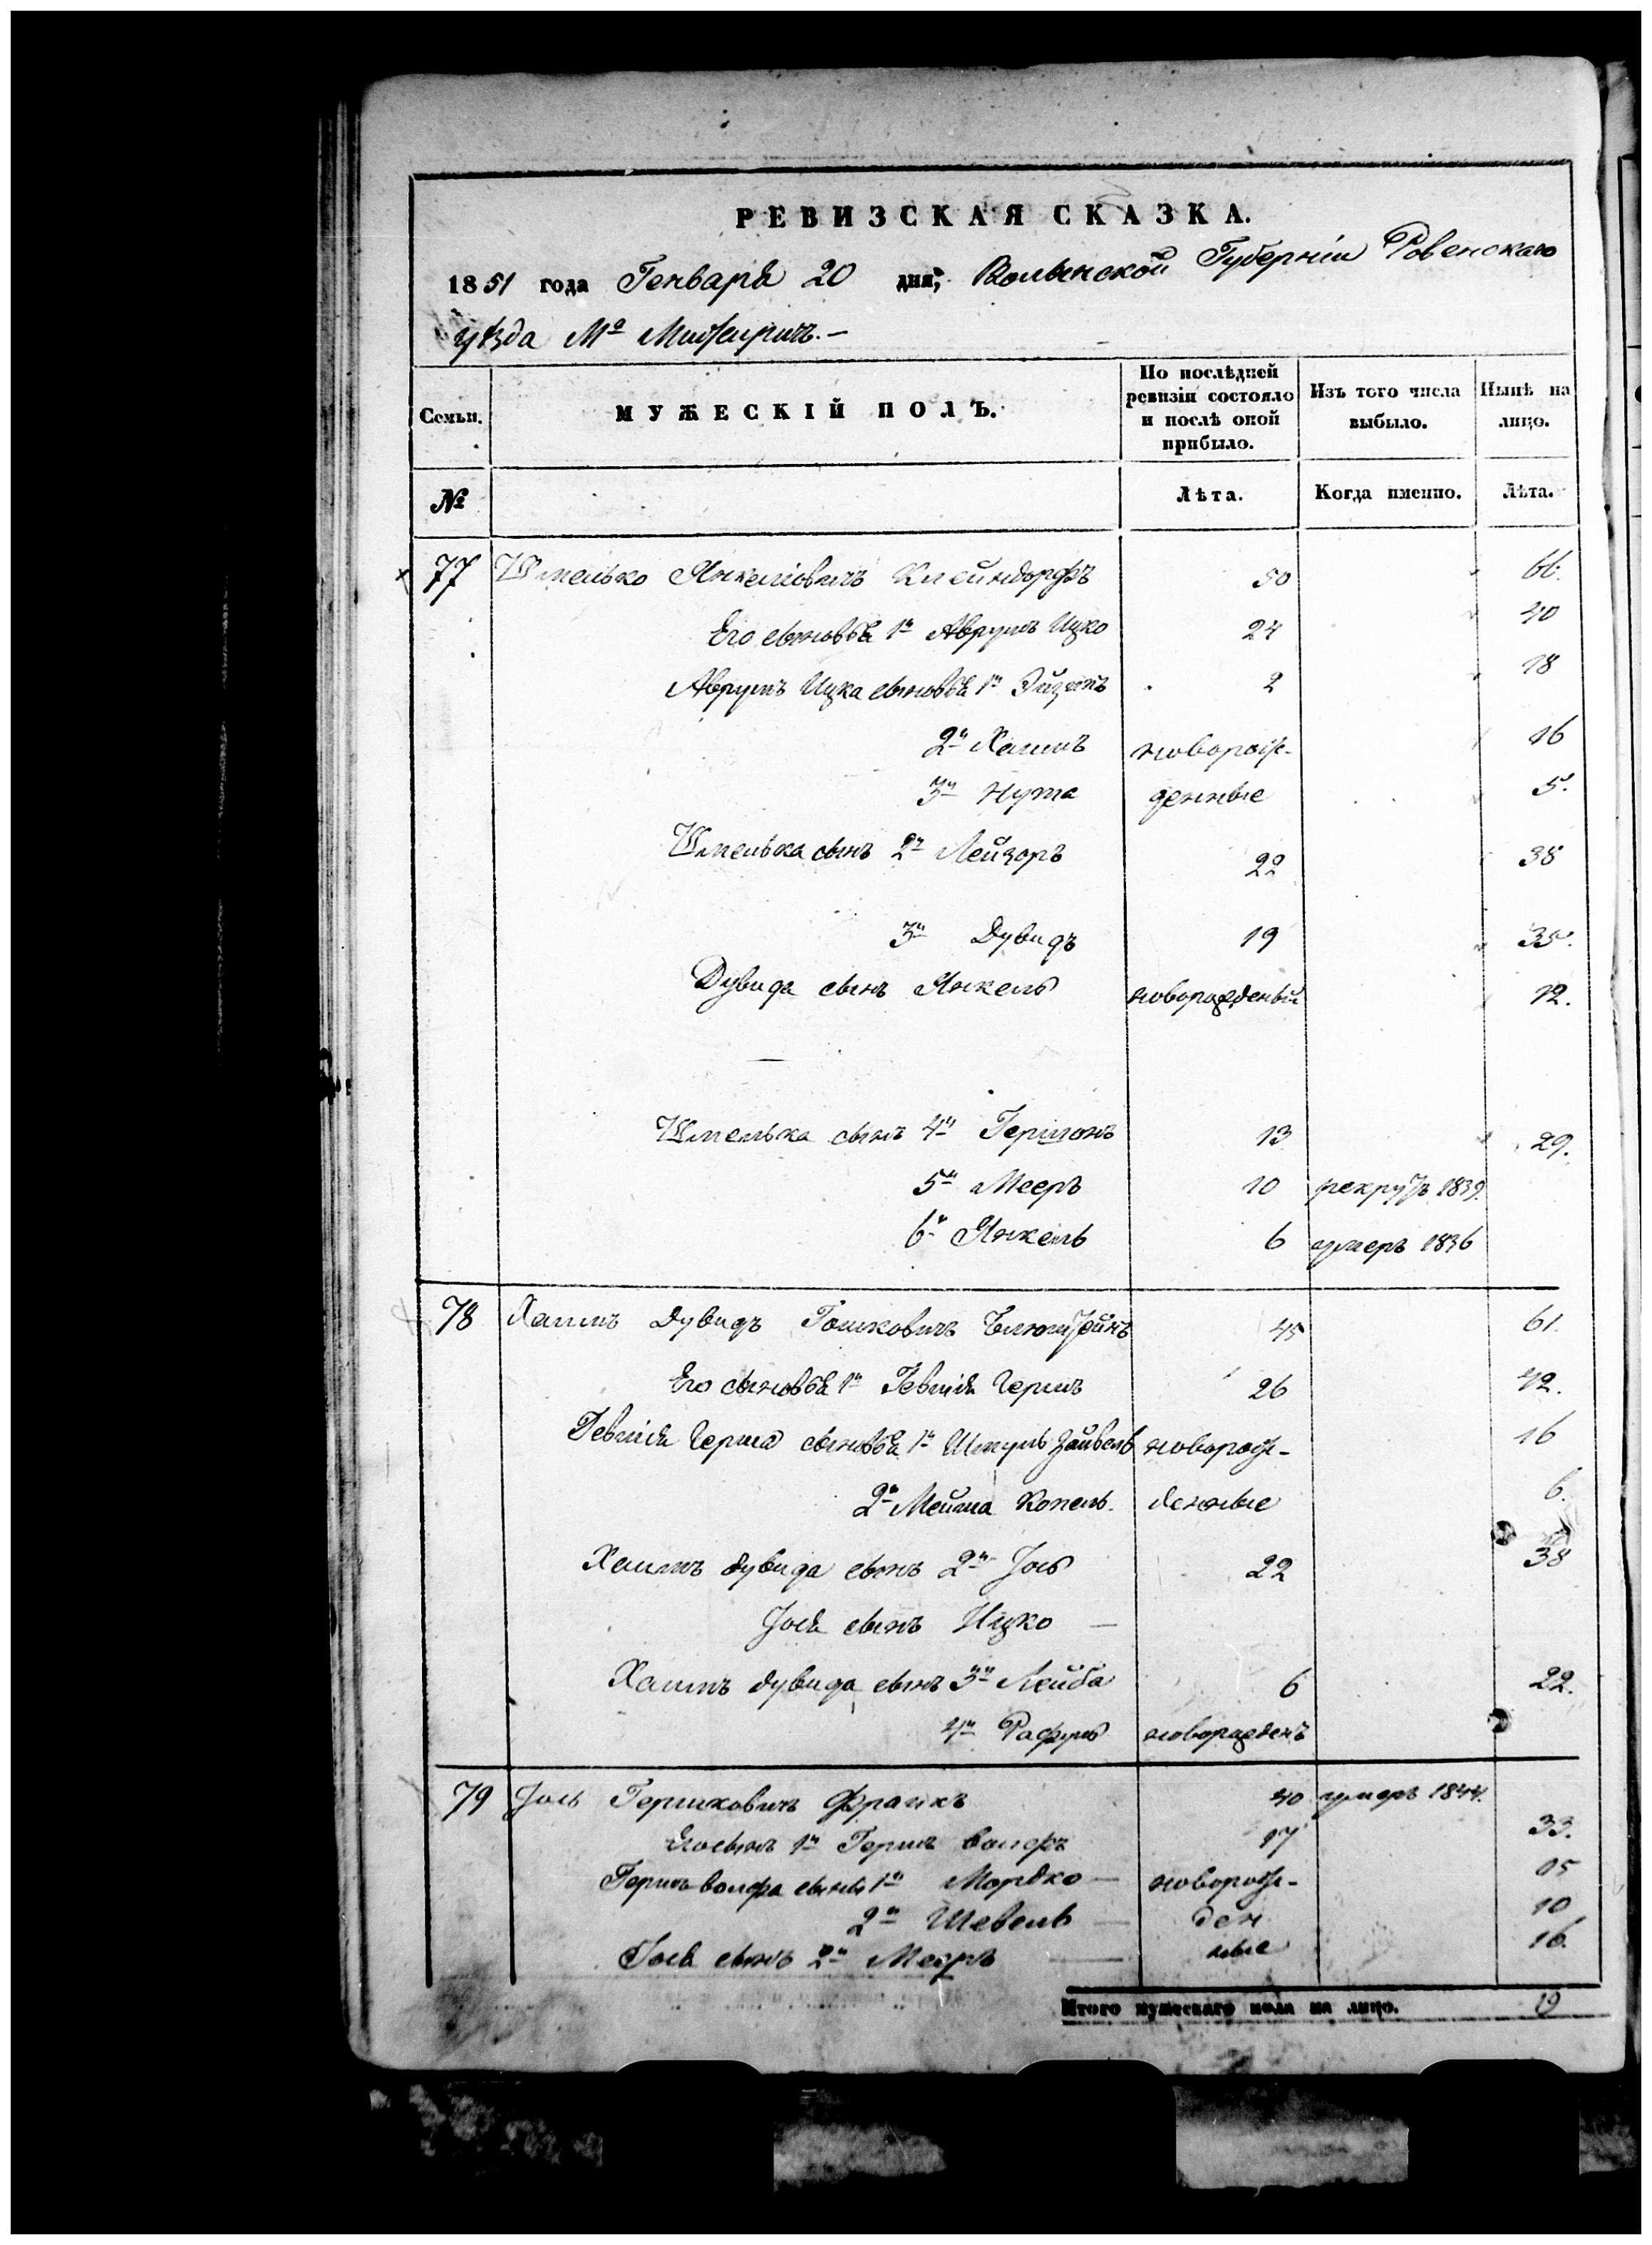 РЕВИЗСКАЯ СКАЗКА.
1851 года Генваря 20 дня, Волынской Губерніи Ровенскаго
уѣзда Мº Межиричъ.—
Семьи. МУЖЕСКІЙ ПОЛЪ. По послѣдней ревизіи состояло и послѣ оной прибыло. Изъ того числа выбыло. Нынѣ на лицо.
№ Лѣта. Когда именно. Лѣта.
77 Шмелько Янкеліовичъ Клейндорфъ 50 66.
Его сыновья 1й Аврумъ Ицко 24 40
Аврумъ Ицка сыновья 1й Эйзикъ 2 18
2й Хаимъ новорож- 16
3й Нута денные 5.
Шмелька сынъ 2й Лейзоръ 22 38
3й Дувидъ 19 35.
Дувида сынъ Янкель новорожденый 12.
Шмелька сынъ 4й Гершонъ 13 29.
5й Мееръ 10 рекрутъ 1839.
6й Янкель 6 умеръ 1836
78 Хаимъ Дувидъ Гошковичъ 45 61.
Его сыновья 1й Гершъ 26 42.
Герша сыновья 1й Шмуль Зайвель новорож- 16
2й Копель. денные 6.
Хаимъ дувида сынъ 2й Іось 22 38
Іося сынъ Ицко —
Хаимъ дувида сынъ 3й Лейба 6 22.
4й Рафуль новорожденъ
79 Іось Гершковичъ Франкъ 40 умеръ 1844.
Его сынъ 1й Гершъ волфъ 17 33.
Гершъ волфа сынъ 1й Мордко — новорож- 15
2й Шевель — ден 10
Іося сынъ 2й Мееръ — ные 16.
Итого мужескаго пола на лицо. 19